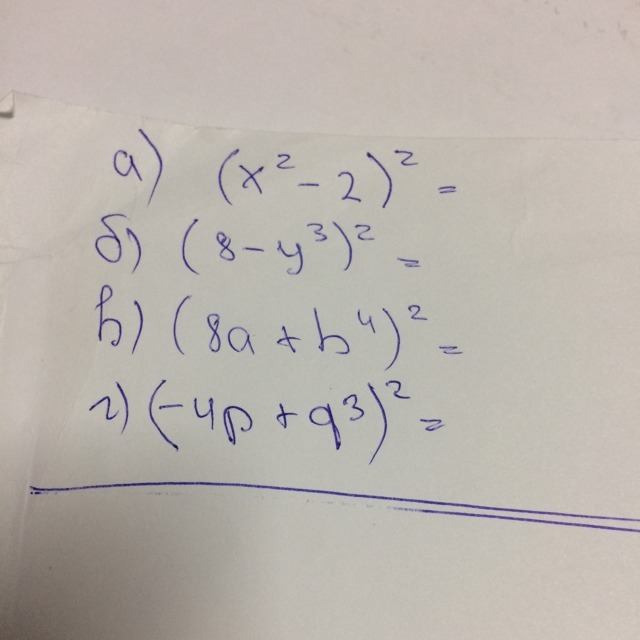 а) (x² - 2)² =
б) (8 - y³)² =
в) (8a + b⁴)² =
г) (-4p + q³)² =